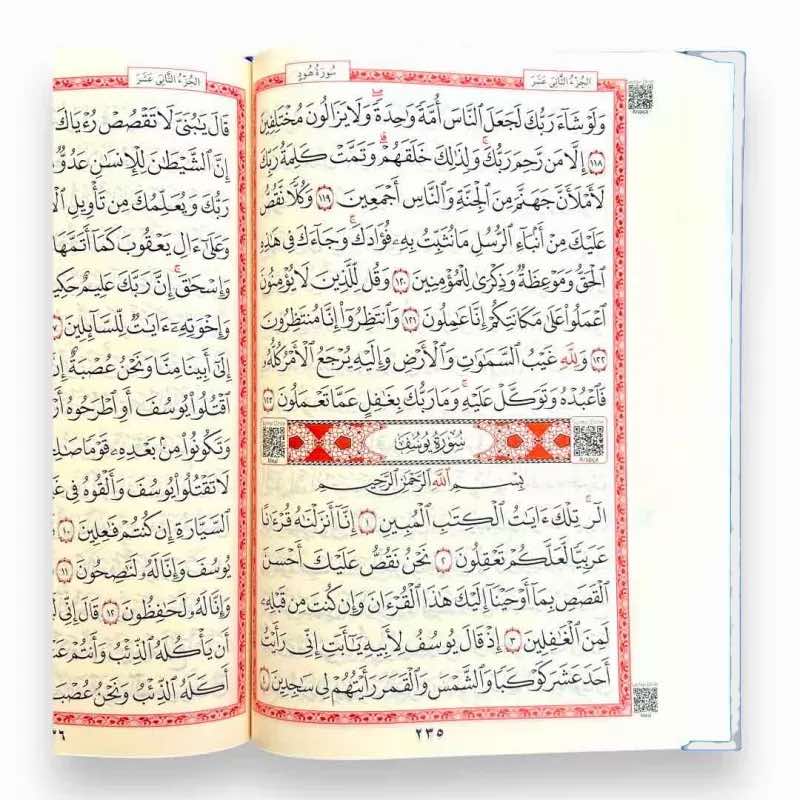 الجزء الثاني عشر
سورة هود
وَلَوْ شَآءَ رَبُّكَ لَجَعَلَ ٱلنَّاسَ أُمَّةً وَٰحِدَةً وَلَا يَزَالُونَ مُخْتَلِفِينَ
﴿١١٨﴾ إِلَّا مَن رَّحِمَ رَبُّكَ وَلِذَٰلِكَ خَلَقَهُمْ وَتَمَّتْ كَلِمَةُ رَبِّكَ
لَأَمْلَأَنَّ جَهَنَّمَ مِنَ ٱلْجِنَّةِ وَٱلنَّاسِ أَجْمَعِينَ ﴿١١٩﴾ وَكُلًّا نَّقُصُّ
عَلَيْكَ مِنْ أَنۢبَآءِ ٱلرُّسُلِ مَا نُثَبِّتُ بِهِۦ فُؤَادَكَ وَجَآءَكَ فِى هَٰذِهِ
ٱلْحَقُّ وَمَوْعِظَةٌ وَذِكْرَىٰ لِلْمُؤْمِنِينَ ﴿١٢٠﴾ وَقُل لِّلَّذِينَ لَا يُؤْمِنُونَ
ٱعْمَلُوا۟ عَلَىٰ مَكَانَتِكُمْ إِنَّا عَٰمِلُونَ ﴿١٢١﴾ وَٱنتَظِرُوٓا۟ إِنَّا مُنتَظِرُونَ
﴿١٢٢﴾ وَلِلَّهِ غَيْبُ ٱلسَّمَٰوَٰتِ وَٱلْأَرْضِ وَإِلَيْهِ يُرْجَعُ ٱلْأَمْرُ كُلُّهُۥ
فَٱعْبُدْهُ وَتَوَكَّلْ عَلَيْهِ وَمَا رَبُّكَ بِغَٰفِلٍ عَمَّا تَعْمَلُونَ ﴿١٢٣﴾
سُورَةُ يُوسُفَ
بِسْمِ ٱللَّهِ ٱلرَّحْمَٰنِ ٱلرَّحِيمِ
الٓر تِلْكَ ءَايَٰتُ ٱلْكِتَٰبِ ٱلْمُبِينِ ﴿١﴾ إِنَّآ أَنزَلْنَٰهُ قُرْءَٰنًا
عَرَبِيًّا لَّعَلَّكُمْ تَعْقِلُونَ ﴿٢﴾ نَحْنُ نَقُصُّ عَلَيْكَ أَحْسَنَ
ٱلْقَصَصِ بِمَآ أَوْحَيْنَآ إِلَيْكَ هَٰذَا ٱلْقُرْءَانَ وَإِن كُنتَ مِن قَبْلِهِۦ
لَمِنَ ٱلْغَٰفِلِينَ ﴿٣﴾ إِذْ قَالَ يُوسُفُ لِأَبِيهِ يَٰٓأَبَتِ إِنِّى رَأَيْتُ
أَحَدَ عَشَرَ كَوْكَبًا وَٱلشَّمْسَ وَٱلْقَمَرَ رَأَيْتُهُمْ لِى سَٰجِدِينَ ﴿٤﴾
٢٣٥
الجزء الثاني عشر
قَالَ يَٰبُنَىَّ لَا تَقْصُصْ رُءْيَاكَ
إِنَّ ٱلشَّيْطَٰنَ لِلْإِنسَٰنِ عَدُوٌّ
رَبُّكَ وَيُعَلِّمُكَ مِن تَأْوِيلِ
وَعَلَىٰٓ ءَالِ يَعْقُوبَ كَمَآ أَتَمَّهَا
وَإِسْحَٰقَ إِنَّ رَبَّكَ عَلِيمٌ
وَإِخْوَتِهِۦٓ ءَايَٰتٌ لِّلسَّآئِلِينَ ﴿٧﴾
إِلَىٰٓ أَبِينَا مِنَّا وَنَحْنُ عُصْبَةٌ
ٱقْتُلُوا۟ يُوسُفَ أَوِ ٱطْرَحُوهُ
وَتَكُونُوا۟ مِنۢ بَعْدِهِۦ قَوْمًا
لَا تَقْتُلُوا۟ يُوسُفَ وَأَلْقُوهُ فِى
ٱلسَّيَّارَةِ إِن كُنتُمْ فَٰعِلِينَ ﴿١٠﴾
يُوسُفَ وَإِنَّا لَهُۥ لَنَٰصِحُونَ ﴿١١﴾
وَإِنَّا لَهُۥ لَحَٰفِظُونَ ﴿١٢﴾ قَالَ إِنِّى
أَن يَأْكُلَهُ ٱلذِّئْبُ وَأَنتُمْ
أَكَلَهُ ٱلذِّئْبُ وَنَحْنُ عُصْبَةٌ